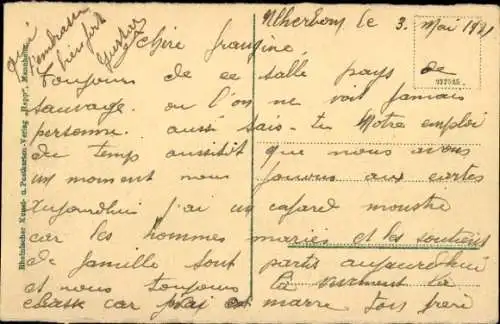 le 3. Mai 1921
Chère frangine,
Toujours de ce salle pays de
sauvage. ou l'on ne voit jamais
personne. aussi sais-tu Notre emploi
du temps aussitôt que nous avons
un moment nous jouons aux cartes
Aujourdhui j'ai un cafard monstre
car les hommes mariés et les soutiens
de famille sont partis aujourdhui
et nous toujours la
classe car j'ai marre ton frère
Gustave
bien fort
t'embrasse
qui
937525
Rheinischer Kunst- u. Postkarten-Verlag „Hepp“, Mannheim.